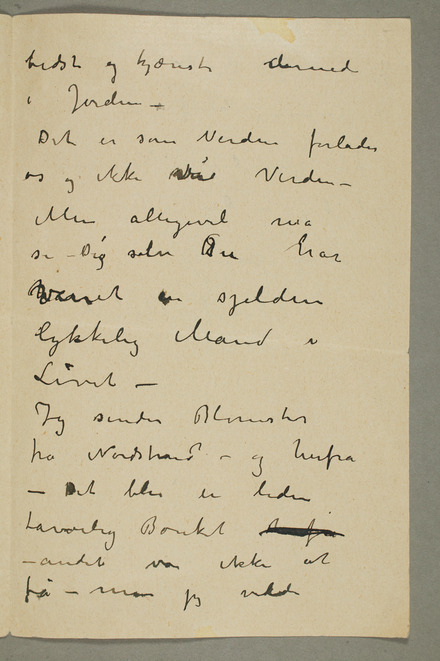 bedst og kjærest dermed
i Jorden –
Det er som Verden forlader
os og ikke vi Verden –
Men alligevel maa
se – Dig selv Du har
været en sjelden
lykkelig Mand i
Livet –
Jeg sender Blomster
fra Nordstrand – og herfra
– Det blev en liden
tarvelig Bouket herfra
– andet var ikke at
få – men jeg vilde